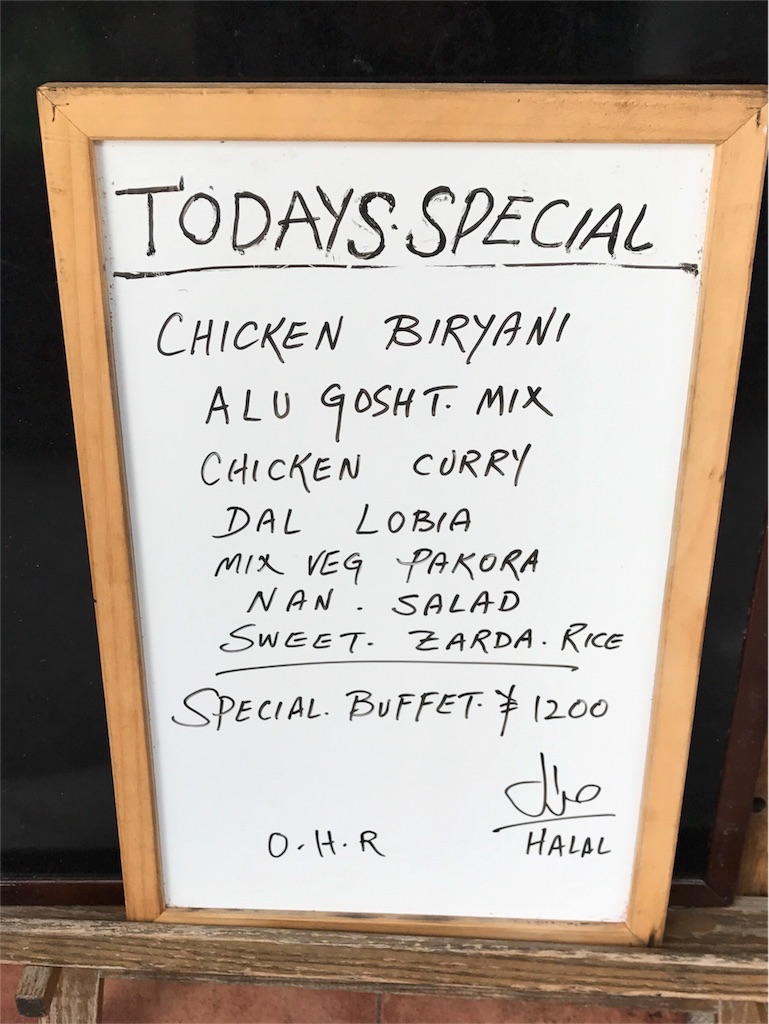 TODAYS·SPECIAL
CHICKEN BIRYANI
ALU GOSHT. MIX
CHICKEN CURRY
DAL LOBIA
MIX VEG PAKORA
NAN . SALAD
SWEET. ZARDA. RICE
SPECIAL. BUFFET. ¥ 1200
حلال
O.H.R HALAL